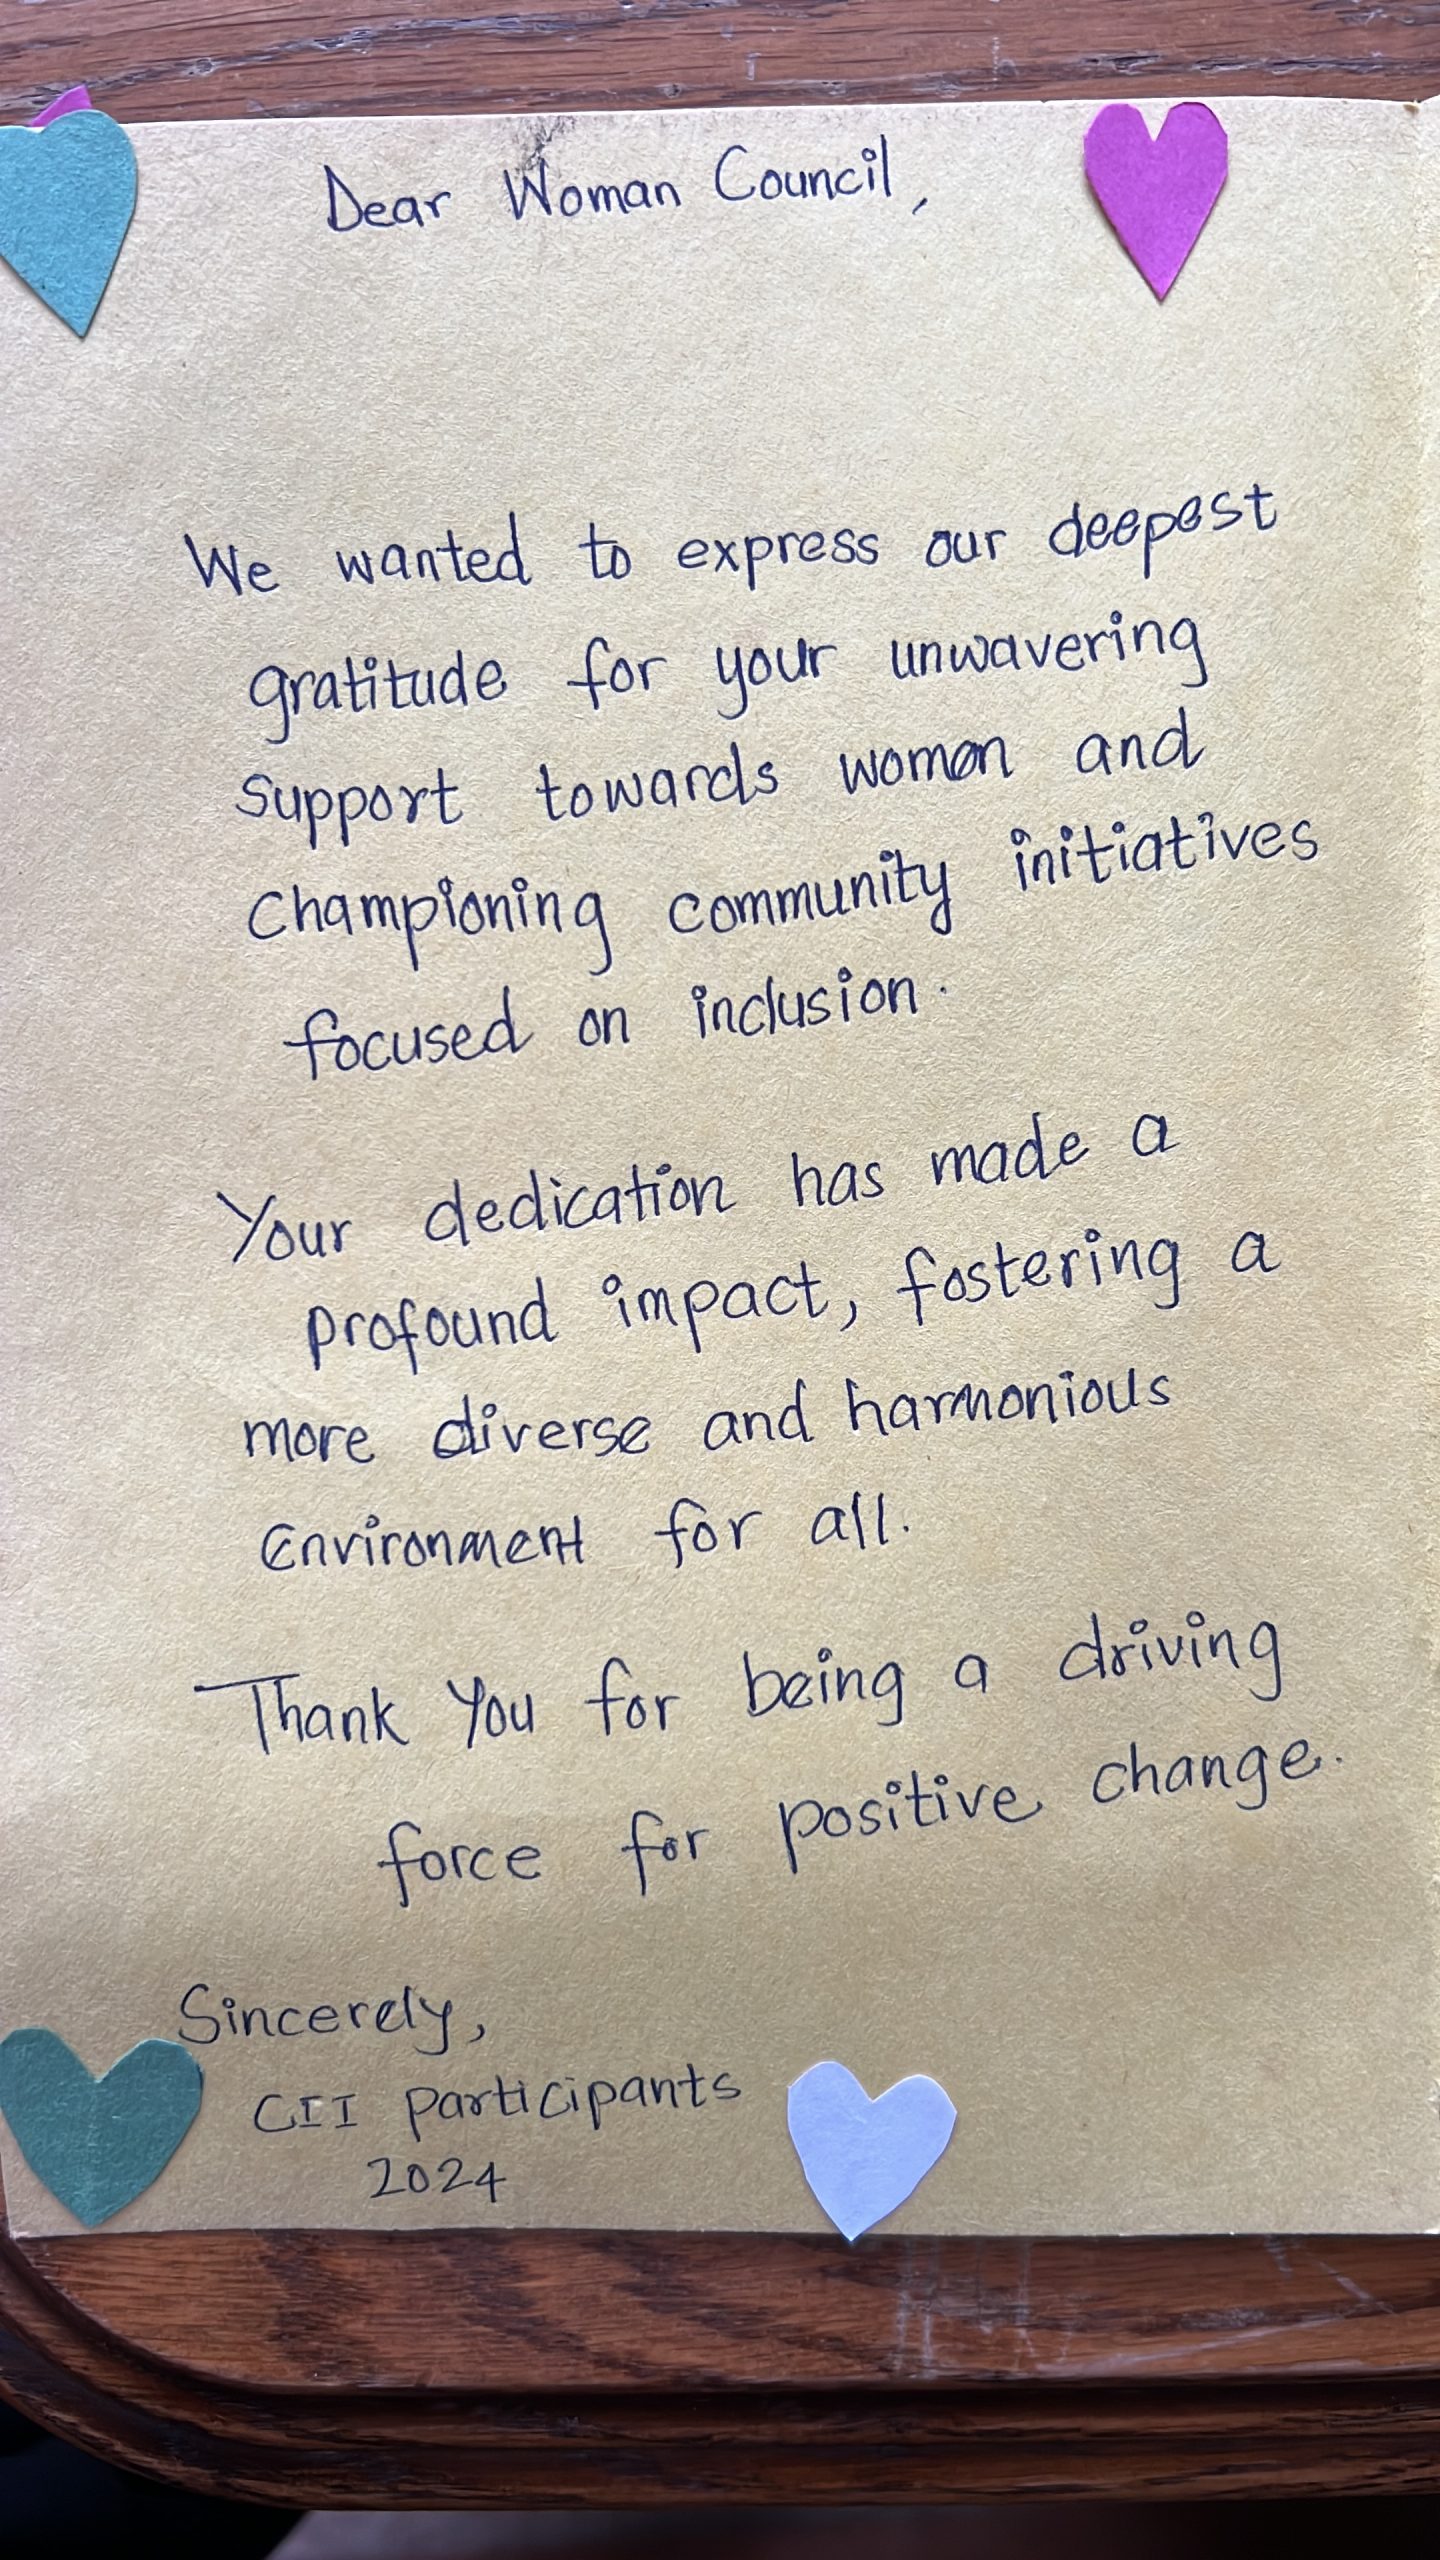 Dear Woman Council,
We wanted to express our deepest
gratitude for your unwavering
support towards woman and
Championing community initiatives
focused on inclusion.
Your dedication has made a
profound impact, fostering a
more diverse and harmonious
Environment for all.
Thank You for being a driving
force for positive change.
Sincerely,
CII participants
2024